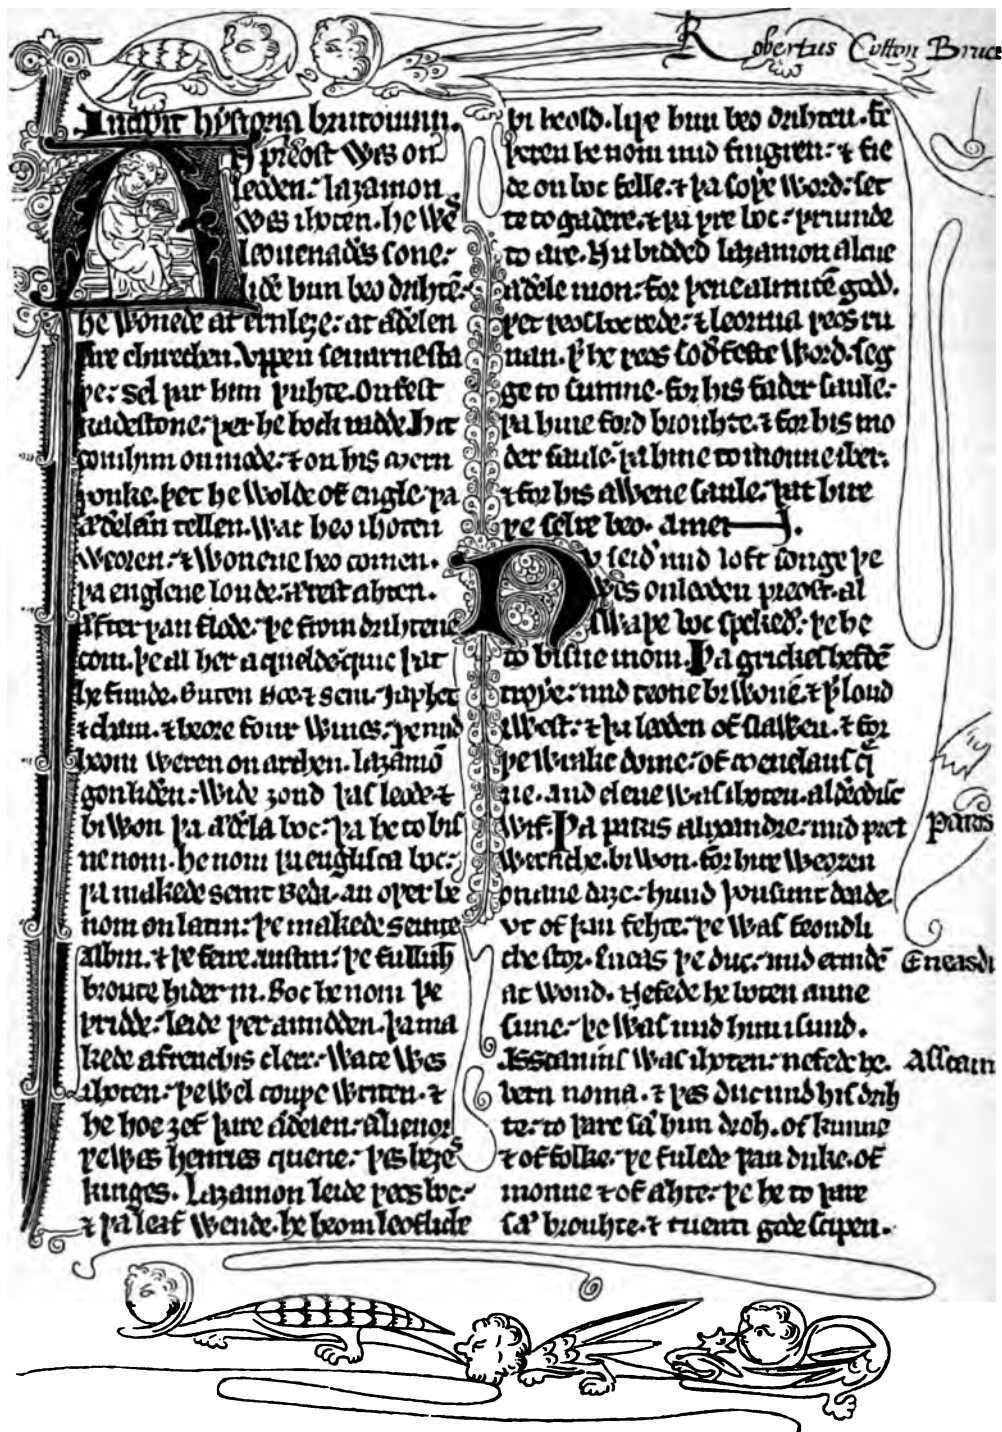 Robertus Cotton Bruce
Incipit hystoria brutonum.
AN preost wes on
leoden. laȝamon
wes ihoten. he wes
leouenaðes sone.
liðe him beo drihtē.
he wonede at ernleȝe. at æðelen
are chirechen. vppen seuarne sta
þe. sel þar him þuhte. onfest
radestone. þer he bock radde. hit
com him on mode. ⁊ on his mern
þonke. þet he wolde of engle. þa
æðelæn tellen. wat heo ihoten
weoren. ⁊ wonene heo comen.
þa englene londe. ærest ahten.
æfter þan flode. þe from drihtene
com. þe al her a quelde. quic þat
he funde. buten noe. ⁊ sem. iaphet
⁊ cham. ⁊ heore four wiues. þe mid
heom weren on archen. laȝamō
gon liðen. wide ȝond þas leode. ⁊
bi won þa æðela boc. þa he to bis
ne nom. he nom þa englisca boc.
þa makede seint beda. an oþer he
nom on latin. þe makede seinte
albin. ⁊ þe feire austin. þe fulluht
broute hider in. boc he nom þe
þridde. leide þer amidden. þa ma
kede a frenchis clerc. wace wes
ihoten. þe wel couþe writen. ⁊
he hoe ȝef þare æðelen. ælienor
þe wes henries quene. þes heȝes
kinges. laȝamon leide þeos boc.
⁊ þa leaf wende. he heom leofliche
bi heold. liþe him beo drihten. fe
þeren he nom mid fingren. ⁊ fie
de on boc felle. ⁊ þa soþe word. set
te to gadere. ⁊ þa þre boc. þrumde
to are. nu bidded laȝamon alcne
æðele mon. for þene almitē godd.
þet þeos boc rede. ⁊ leornia þeos ru
nan. þ he þeos soðfeste word. seg
ge to sumne. for his fader saule.
þa hine ford brouhte. ⁊ for his mo
der saule. þa hine to monne iber.
⁊ for his awene saule. þat hire
þe selre beo. amen.
Nv seið mid loft songe þe
wes on leoden preost. al
swa þe boc spekeð. þe he
to bisne inom. Þa grickes hefdē
troye. mid teone bi wonē. ⁊ þ lond
iwest. ⁊ þa leoden of slawen. ⁊ for
þe wrake dome. of menelaus q̄
ne. and elene was ihoten. aldeodisc
wif. Þa paris alixandre. mid pret
wrenche bi won. for hire weoren
on ane dæȝe. hund þousunt deade.
vt of þan fehte. þe was feondli
che stor. eneas þe duc. mid ermdē
at wond. nefede he boten anne
sune. þe was mid him isund.
asscanius was ihoten. nefede he
bern nama. ⁊ þes duc mid his drih
te. to þare sæ him droh. of kunne
⁊ of folke. þe fulede þan duke. of
monne ⁊ of ahte. þe he to þare
sæ brouhte. ⁊ tuenti gode scipen.
Paris
Eneas du
Asscani